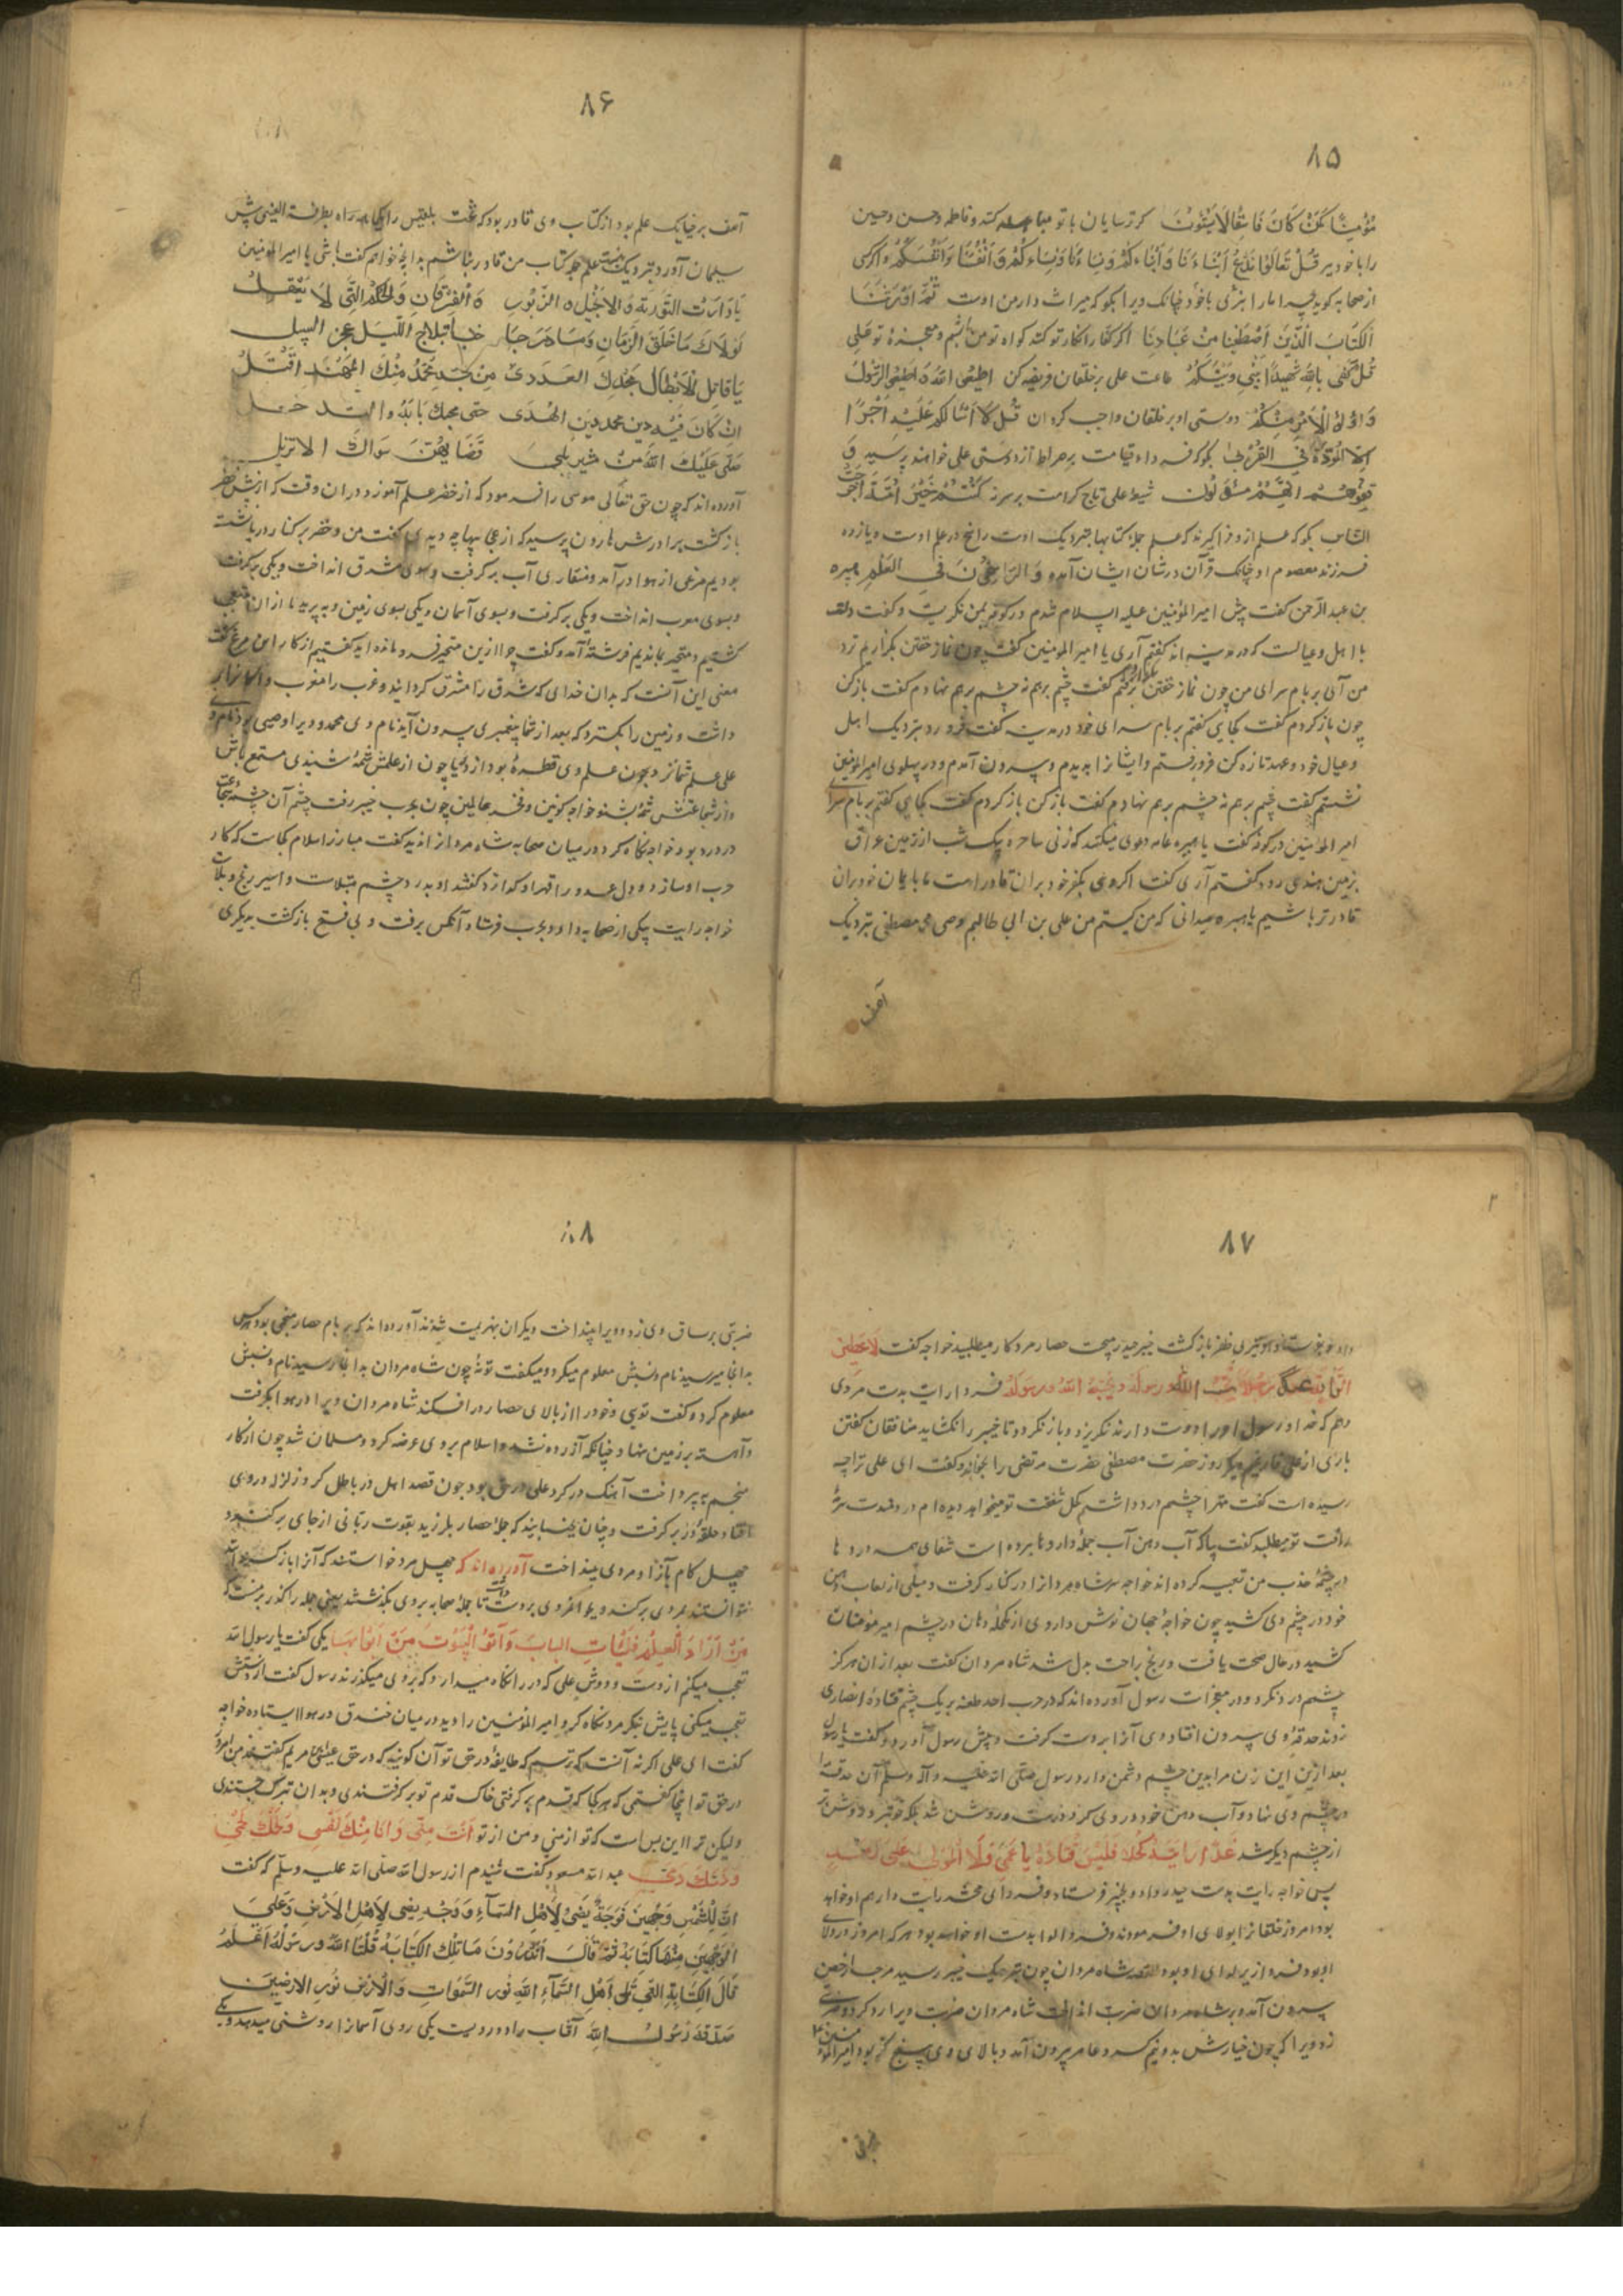 ۸۵
مُؤْمِنًا كَمَنْ كَانَ فَاسِقًا لَا يَسْتَوُونَ کر ترسایان با تو مباهله کنند و فاطمه و حسن و حسین
را با خود ببر قُلْ تَعَالَوْا نَدْعُ اَبْنَاءَنَا وَ اَبْنَاءَكُمْ وَنِسَاءَنَا وَنِسَاءَكُمْ وَ اَنْفُسَنَا وَاَنْفُسَكُمْ و اکر کسی
از صحابه کوید چرا ما را بنزی با خود چنانک ویرا بکو که میراث دار من اوست ثُمَّ اَوْرَثْنَا
الْكِتَابَ الَّذِينَ اصْطَفَيْنَا مِنْ عِبَادِنَا اکر کفار انکار تو کنند کواه تو من باشم و معجزهٔ تو علی
قُلْ كَفَى بِاللهِ شَهِيدًا بَيْنِي وَبَيْنَكُمْ طاعت علی بر خلقان فریضه کن اَطِيعُوا اللهَ وَ اَطِيعُوا الرَّسُولَ
وَ اُولِي الْاَمْرِ مِنْكُمْ دوستی او بر خلقان واجب کردان قُلْ لَا اَسْاَلُكُمْ عَلَيْهِ اَجْرًا
اِلَّا الْمَوَدَّةَ فِي الْقُرْبَى بکو که فردای قیامت بر صراط از دوستی علی خواهند پرسید وَ
قِفُوهُمْ اِنَّهُمْ مَسْئُولُونَ شیعهٔ علی تاج کرامت بر سر نه كُنْتُمْ خَيْرَ اُمَّةٍ اُخْرِجَتْ
لِلنَّاسِ بکو که علم ازو فرا کیرند که علم جملهٔ کتابها بنزدیک اوست راسخ در علم اوست و یازده
فرزند معصوم او چنانک قرآن در شان ایشان آمده وَ الرَّاسِخُونَ فِي الْعِلْمِ هبیره
بن عبدالرحمن کفت پیش امیر المؤمنین علیه السلام شدم در کوفه بمن نکریست و کفت دلت
با اهل و عیالست که در مدینه اند کفتم آری یا امیر المومنین کفت چون نماز خفتن بکزاریم نزد
من آئی بر بام سرای من چون نماز خفتن بکزاردم برفتم کفت چشم برهم نه چشم برهم نهادم کفت باز کن
چون باز کردم کفت کجایی کفتم بر بام سرای خود در مدینه کفت فرو رو بنزدیک اهل
و عیال خود و عهد تازه کن فرو رفتم و ایشانرا بدیدم و بیرون آمدم و در پهلوی امیر المومنین
نشستم کفت چشم برهم نه چشم برهم نهادم کفت باز کن باز کردم کفت کجایی کفتم بر بام سرای
امیر المؤمنین در کوفه کفت یا هبیره عامه دعوی میکنند که زنی ساحره بیک شب از زمین عراق
بزمین هندی رود کفتم آری کفت اکر وی بکفر خود بران قادر است ما با ایمان خود بران
قادرتر باشیم یا هبیره میدانی که من کیستم من علی بن ابی طالبم وصی محمد مصطفی بنزدیک
آصف
۸۶
آصف برخیا یک علم بود از کتاب وی قادر بود که تخت بلقیس را یکماهه راه بطرفة العینی پیش
سلیمان آورد بنزدیک منست علم جمله کتاب من قادر نباشم بدانچه خواهم کفت باشی یا امیر المومنین
يَا وَارِثَ التَّوْرَيةِ وَ الْاِنْجِيلِ وَ الزَّبُورِ وَ الْفُرْقَانِ وَ الْحِكَمِ الَّتِي لَا يُعْقَلُ
لَوْلَاكَ مَا خَلَقَ الزَّمَانَ وَ مَا دَجَا بِابْتِلَاجِ اللَّيْلِ
يَا قَاتِلَ الْاَبْطَالِ الْعِدَى مِنْ حَدِّ مِنْكَ الْمُهَنَّدِ اقْتُلُ
اِنْ كَانَ دِينُ مُحَمَّدٍ دِينَ الْهُدَى حَتَّى
صَلَّى عَلَيْكَ اللهُ مِنْ سِوَاكَ
آورده اند که چون حق تعالی موسی را فرمود که از خضر علم آموزد دران وقت که از پیش خضر
باز کشت برادرش هارون پرسید که از عجایبها چه دیدی کفت من و خضر بر کنار دریا نشسته
بودیم مرغی از هوا در آمد و منقاری آب بر کرفت و سوی مشرق انداخت و یکی بر کرفت
و بسوی مغرب انداخت و یکی بر کرفت و بسوی آسمان و یکی بسوی زمین و بپرید ما ازان متعجب
کشتیم و متحیر بماندیم فرشتهٔ آمد و کفت چرا ازین متحیر فرو مانده اید کفتیم از کار این مرغ کفت
معنی این آنست که بدان خدای که شرق را مشرق کردانید و غرب را مغرب و
داشت و زمین را بکسترد که بعد از شما پیغمبری بیرون آید نام وی محمد و ویرا وصیی بود نام او
علی علم شما نزد علم وی قطرهٔ بود از دریا چون از علمش شمهٔ شنیدی مستمع باش
و از شجاعتش شمهٔ بشنو خواجه کونین و فخر عالمین چون بحرب خیبر رفت چشم آن چشمهٔ شجاعت
در درد بود خواجه نکاه کرد در میان صحابه شاه مردانرا ندید کفت مبارز اسلام کجاست که کار
حرب او سازد و دل عدو را قهر او کدازد کفتند او بدرد چشم مبتلاست و اسیر رنج و بلاست
خواجه رایت بیکی از صحابه داد و بحرب فرستاد آنکس برفت و بی فتح باز کشت بدیکری
۸۷
داد و بفرستاد او نیز بی ظفر باز کشت خیبر حیدر میجست حصار مرد کار میطلبید خواجه کفت لَاُعْطِيَنَّ
الرَّايَةَ غَدًا رَجُلًا يُحِبُّ اللهَ وَ رَسُولَهُ وَ يُحِبُّهُ اللهُ وَ رَسُولُهُ فردا رایت بدست مردی
دهم که خدا و رسول او را دوست دارند نکریزد و باز نکردد تا خیبر را نکشاید منافقان کفتند
باری از علی فارغیم دیکر روز حضرت مصطفی حضرت مرتضی را بخواند و کفت ای علی ترا چه
رسیده است کفت مهترا چشم درد داشتم کحل شفقت تو میخواهد دیده ام دردمندست
رأفت تو میطلبد کفت بیا که آب دهن آب جمله داروها برده است شفای همه دردها
در چشمهٔ عذب من تعبیه کرده اند خواجه سر شاه مردانرا در کنار کرفت و میلی از لعاب دهن
خود در چشم وی کشید چون خواجهٔ جهان نوش داروی از مکحلهٔ دهان در چشم امیر مؤمنان
کشید در حال صحت یافت و رنج براحت بدل شد شاه مردان کفت بعد ازان هرکز
چشمم درد نکرد و در معجزات رسول آورده اند که در حرب احد طعنه بر یک چشم قتادهٔ انصاری
زدند حدقهٔ وی بیرون افتاد وی آنرا بر دست کرفت و پیش رسول آورد و کفت یا رسول
بعد ازین این زن مرا بدین چشم دشمن دارد رسول صلی الله علیه و آله وسلم آن حدقه را
در چشم وی نهاد و آب دهن خود در وی کرد درست و روشن شد بلکه خوبتر و روشن تر
از چشم دیکر شد
پس خواجه رایت بدست حیدر داد و بخیبر فرستاد و فردای محشر رایت دارم او خواهد
بود امروز خلقانرا بولای او فرمودند و فردا لوا بدست او خواهد بود هر که امروز در ولای
او بود فردا زیر لوای او بود القصه شاه مردان چون بنزدیک خیبر رسید مرحب از حصن
بیرون آمد و بر شاه مردان ضربت انداخت شاه مردان ضربت ویرا رد کرد و ضربتی
زد ویرا که چون خیارش بدو نیم کرد و عامر بیرون آمد و بالای وی پنج کز بود امیر المؤمنین
ضربتی
۸۸
ضربتی بر ساق وی زد و ویرا بینداخت دیکران بهزیمت شدند آورده اند که بر بام حصار منجمی بود هر کس
بدانجا میرسید نام و نسبش معلوم میکرد و میکفت تو نهٔ چون شاه مردان بدانجا رسید نام و نسبش
معلوم کرد و کفت تویی و خود را از بالای حصار در افکند شاه مردان ویرا در هوا بکرفت
و آهسته بر زمین نهاد چنانکه آزرده نشد و اسلام بر وی عرضه کرد و مسلمان شد چون از کار
منجم بپرداخت آهنک در کرد علی در حق بود چون قصد اهل در باطل کرد زلزله در وی
افتاد حلقهٔ در بر کرفت و چنان بجنبانید که جملهٔ حصار بلرزید بقوت ربانی از جای بر کند و
چهل کام باز آن در وی بینداخت آورده اند که چهل مرد خواستند که آنرا باز کردانند
نتوانستند مردی بر کند و بجوانمردی بر دست داشت تا جملهٔ صحابه بر وی بکذشتند یعنی جمله را کذر بر منست که
مَنْ اَرَادَ الْعِلْمَ فَلْيَأْتِ الْبَابَ وَ أْتُوا الْبُيُوتَ مِنْ اَبْوَابِهَا یکی کفت یا رسول الله
تعجب میکنم از دست و دوش علی که در را نکاه میدارد که بر وی میکذرند رسول کفت از دستش
تعجب میکنی پایش بنکر مرد نکاه کرد امیر المؤمنین را دید در میان خندق در هوا ایستاده خواجه
کفت ای علی اکر نه آنست که ترسم که طایفهٔ در حق تو آن کویند که در حق عیسی مریم کفتند من امروز
در حق تو آنها کفتمی که هر کجا که قدم بر کرفتی خاک قدم تو بر کرفتندی و بدان تبرک جستندی
ولیکن ترا این بس است که تو از منی و من از تو اَنْتَ مِنِّي وَ اَنَا مِنْكَ لَحْمُكَ لَحْمِي
وَ دَمُكَ دَمِي عبد الله مسعود کفت شنیدم از رسول الله صلی الله علیه وسلم که کفت
اِنَّ لِلشَّمْسِ وَجْهَيْنِ فَوَجْهٌ يُضِيءُ لِاَهْلِ السَّمَاءِ وَ وَجْهٌ يُضِيءُ لِاَهْلِ الْاَرْضِ وَ عَلَى
الْوَجْهَيْنِ مِنْهَا كِتَابَةٌ ثُمَّ قَالَ اَتَدْرُونَ مَا تِلْكَ الْكِتَابَةُ قُلْنَا اللهُ وَ رَسُولُهُ اَعْلَمُ
قَالَ الْكِتَابَةُ الَّتِي تَلِي اَهْلَ السَّمَاءِ اللهُ نُورُ السَّمَوَاتِ وَ الْاَرْضِ نُورُ الْاَرَضِينَ
صَدَقَ رَسُولُ اللهِ آفتاب را دو رویست یکی روی آسمانرا روشنی میدهد و یکی